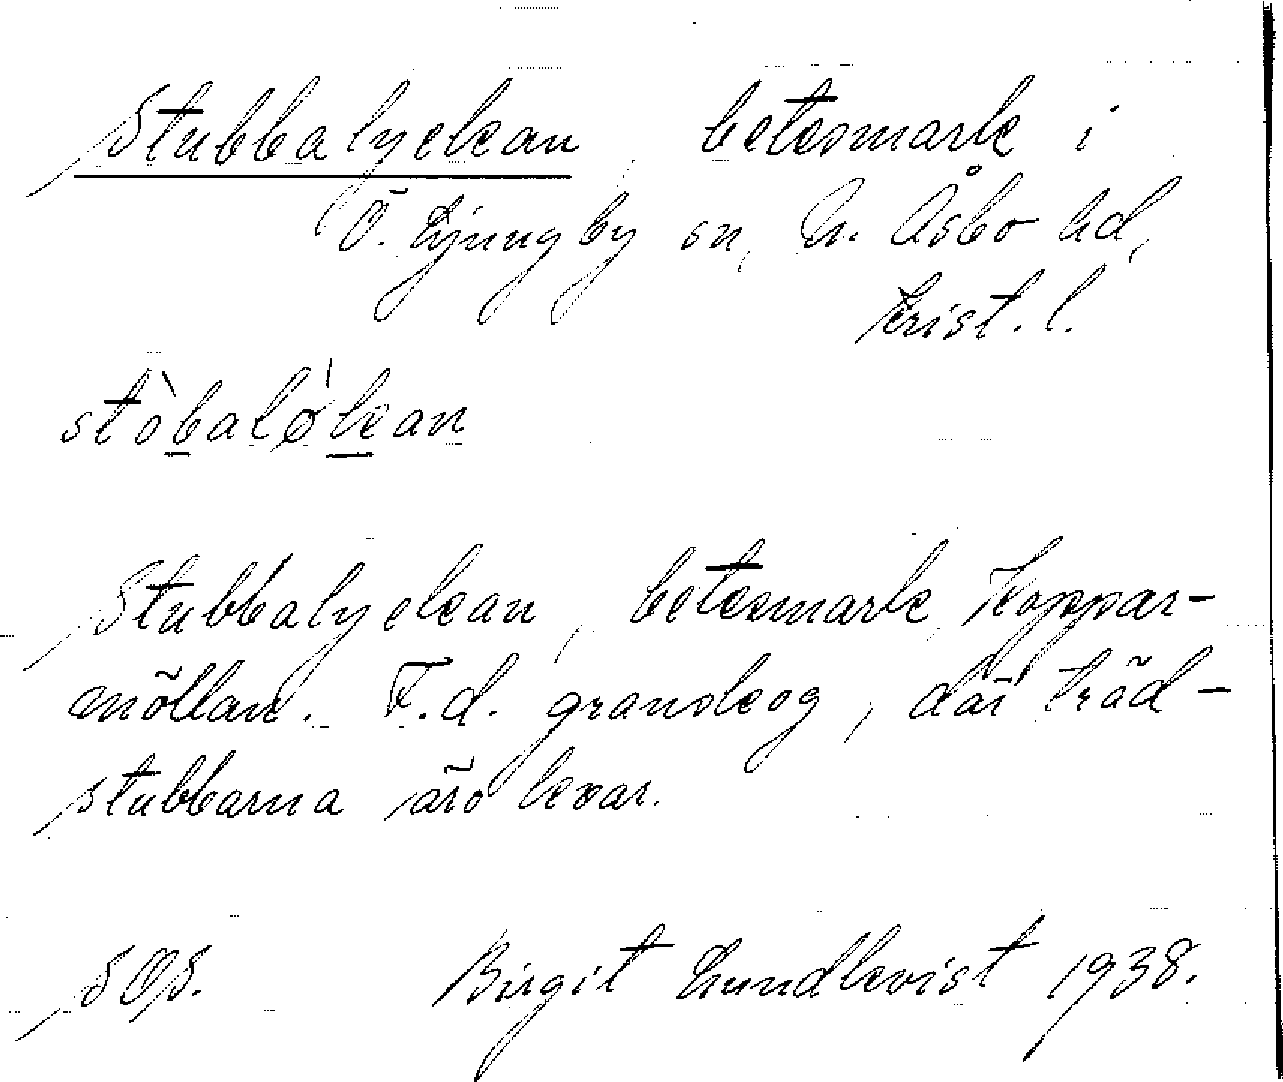 Stubbalyckan, betesmark i
Ö. Ljungby sn, N. Åsbo hd,
Krist. l.
stòbalø̀kan
Stubbalyckan, betesmark, Koppar-
möllan. F.d. granskog, där träd-
stubbarna äro kvar.
SOS. Birgit Lundkvist 1938.